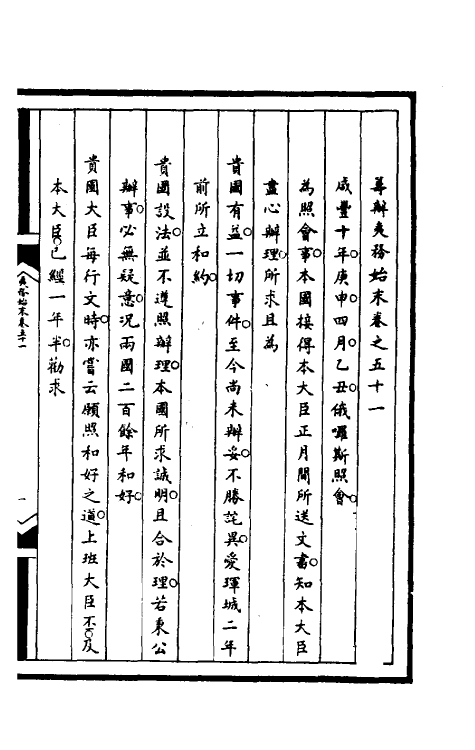 籌辦夷務始末卷之五十一
咸豐十年。庚申四月。乙丑。俄囉斯照會。
為照會事。本國接得本大臣正月間所送文書。知本大臣
盡心辦理。所求且為
貴國有益。一切事件。至今尚未辦妥。不勝詫異。愛琿城二年
前所立和約。
貴國設法。並不遵照辦理。本國所求誠明。且合於理。若秉公
辦事。必無疑意。況兩國二百餘年和好。
貴國大臣每行文時。亦嘗云願照和好之道。上班大臣不及。
本大臣。已經一年半。勸求
夷務始末卷五十一
一